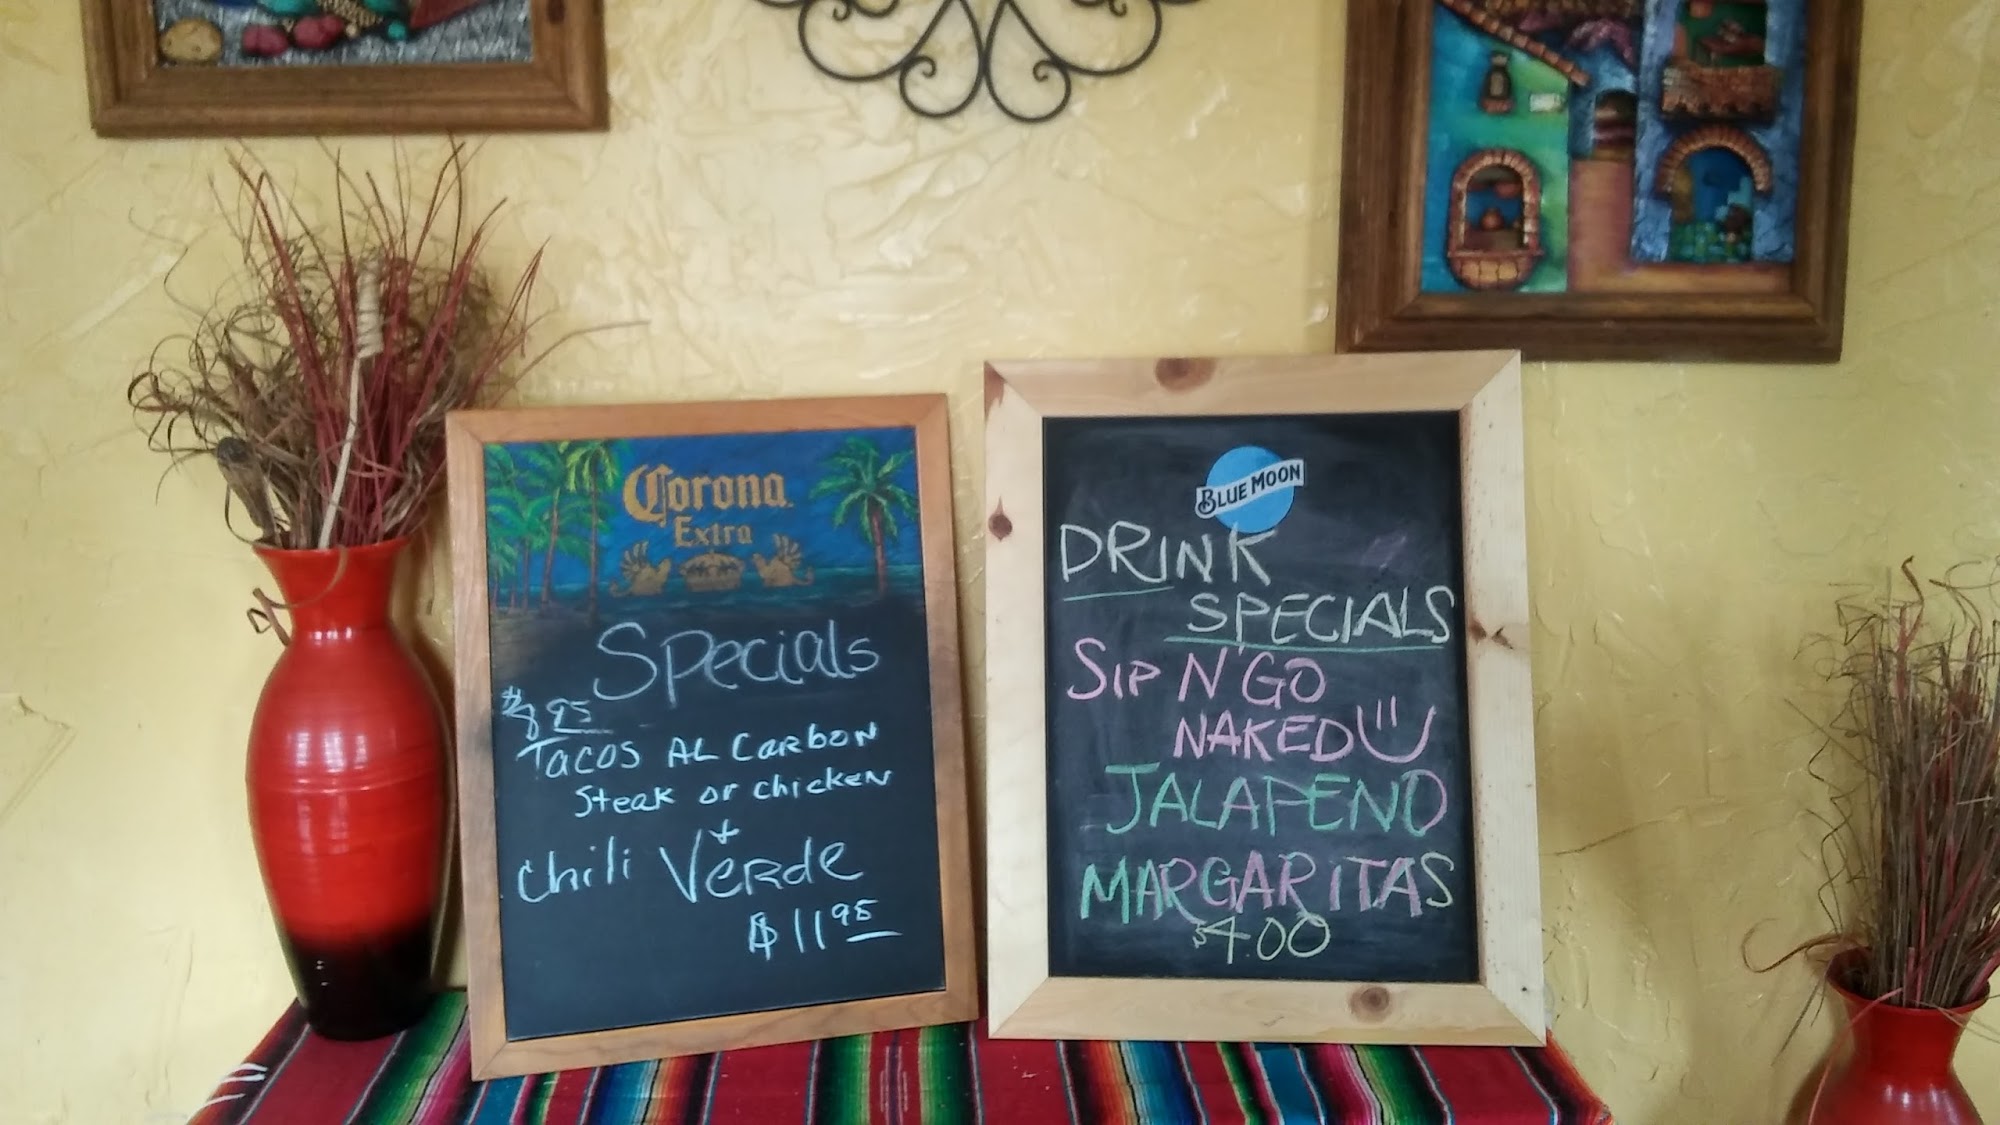 Corona
Extra
Specials
$8 95
TACOS AL CARBON
Steak or chicken
+
Chili VERde
$11 95
BLUE MOON
DRINK
SPECIALS
SIP N' GO
NAKED
JALAPENO
MARGARITAS
$4.00